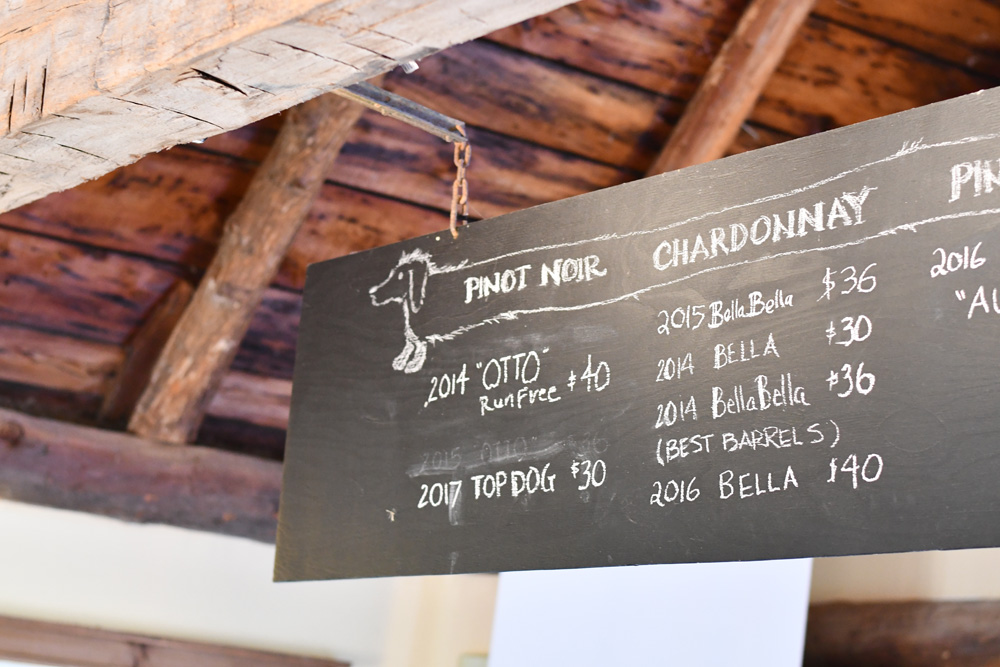 PINOT NOIR
2014 "OTTO" $40
RunFree
2015 "OTTO"
2017 TOPDOG $30
CHARDONNAY
2015 BellaBella $36
2014 BELLA $30
2014 BellaBella $36
(BEST BARRELS)
2016 BELLA $40
PIN
2016